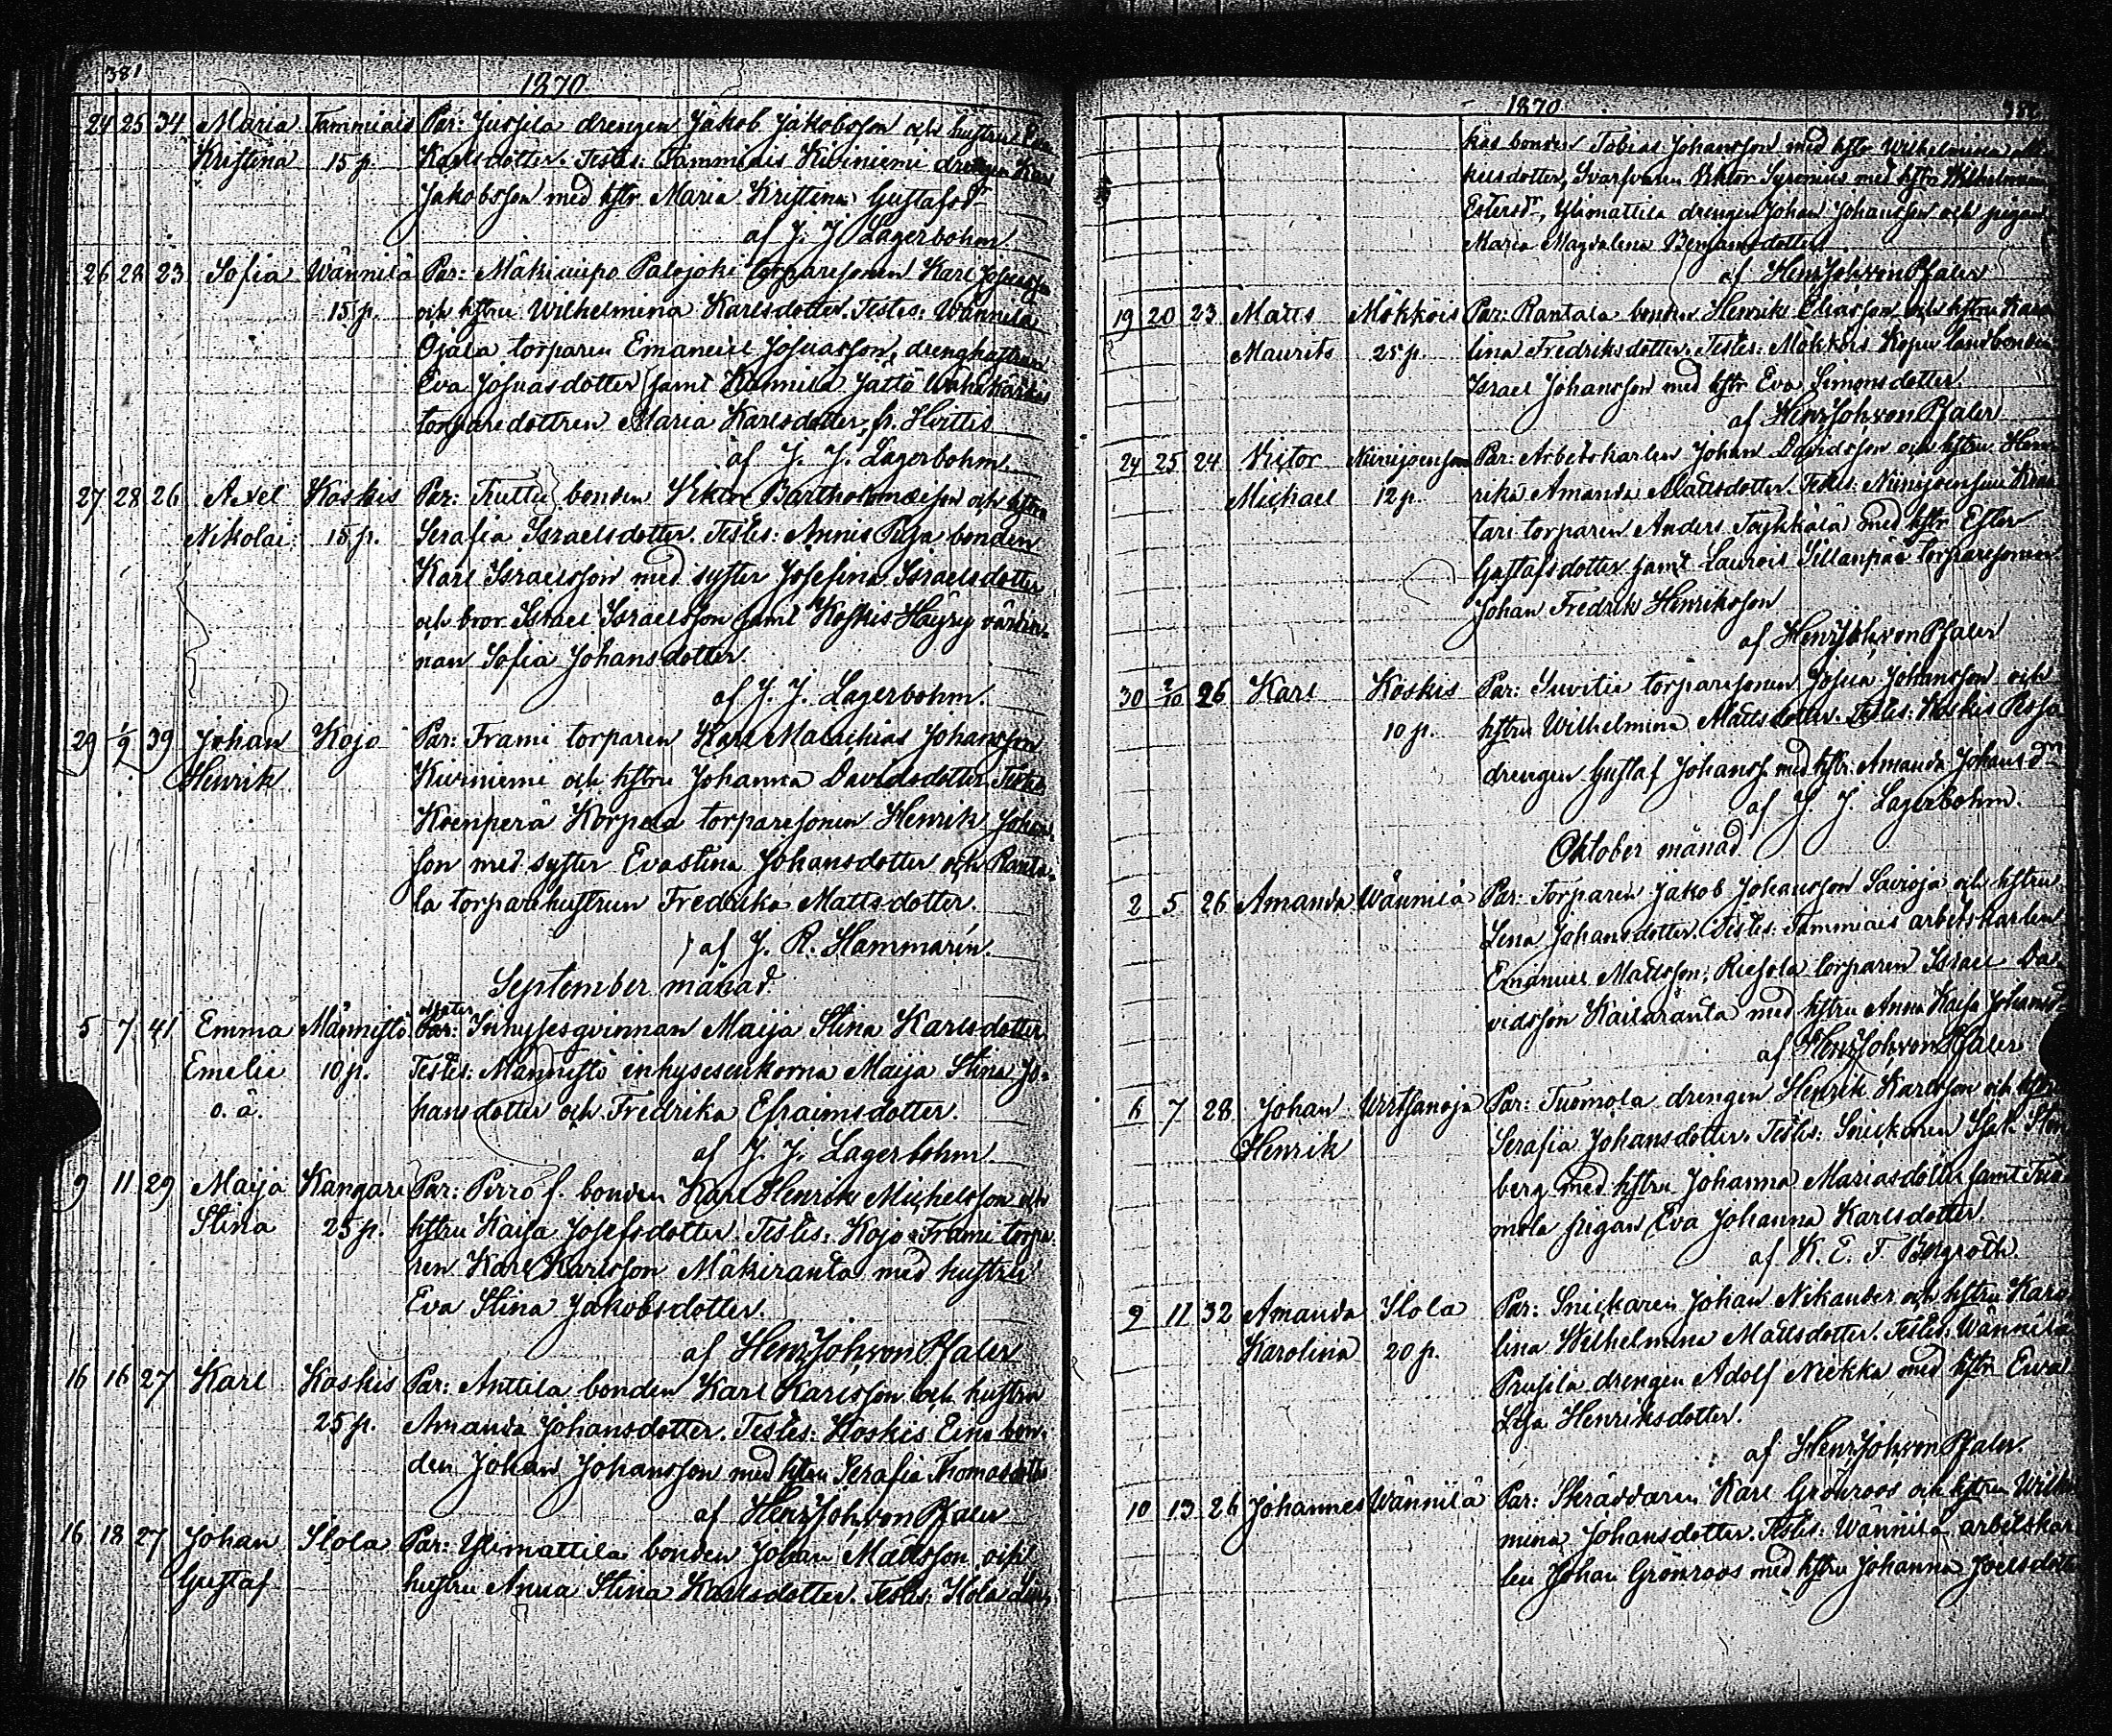 381
1870
24 25 34 Maria Tammiais Par: Jussila drengen Jakob Jakobsson och hustru Eva
Kristina 15 p. Karlsdotter. Testes: Tammiais Kiviniemi drengen Karl
Jakobsson med hstr Maria Kristina Gustafsdr
af J. J. Lagerbohm
26 28 23 Sofia Wännilä Par: Mäkiuipo Palojoki torparesonen Karl
15 p. och hstru Wilhelmina Karlsdotter. Testes: Wännilä
Ojala torparen Emanuel Josuasson, drenghustrun
Eva Josuasdotter samt Kannila Jättö
torparedottren Maria Karlsdotter, fr. Hvittis
af J. J. Lagerbohm
27 28 26 Axel Koskis Par: Tuttu bonden Viktor Bartholomæsson och hstru
Nikolai 15 p. Serafia Israelsdotter. Testes: Annis Pilja bonden
Karl Israelsson med syster Josefina Israelsdotter
och bror Israel Israelsson samt Koskis Häyry värdin-
nan Sofia Johansdotter.
af J. J. Lagerbohm.
29 1/9 39 Johan Kojo Par: Frami torparen Karl Malachias Johansson
Henrik Kiviniemi och hstru Johanna Davidsdotter. Testes
Koenperä Korpela torparesonen Henrik Johans-
son med syster Evastina Johansdotter och Ranta-
la torparehustrun Fredrika Mattsdotter.
af J. R. Hammarin.
September månad.
moder
5 7 41 Emma Männistö Par: Inhysesqvinnan Maija Stina Karlsdotter
Emelie 10 p. Testes: Männistö inhysesenkorna Maija Stina Jo-
o. ä. hansdotter och Fredrika Efraimsdotter.
af J. J. Lagerbohm.
9 11 29 Maija Kangare Par: Pirro f. bonden Karl Henrik Michelsson och
Stina 25 p. hstru Kaisa Josefsdotter. Testes: Kojo Frami torpa-
ren Karl Karlsson Mäkiranta med hustru
Eva Stina Jakobsdotter.
af Henr Joh von Pfaler
16 16 27 Karl Koskis Par: Anttila bonden Karl Karlsson och hustru
25 p. Amanda Johansdotter. Testes: Koskis Eino bon-
den Johan Johansson med hstru Serafia Thomasdotter
af Henr Joh von Pfaler
16 18 27 Johan Ilola Par: Ylimattila bonden Johan Mattsson och
Gustaf hustru Anna Stina Karlsdotter. Testes: Ilola
1870
382
kas bonden Tobias Johansson med hstr Wilhelmina
keusdotter, Svarfvaren Viktor Syrenius med hstr Wilhelmina
Estersdr, Ylimattila drengen Johan Johansson och pigan
Maria Magdalena Benjamsdotter
af Henr Joh von Pfaler
19 20 23 Matts Mökköis Par: Rantala bonden Henrik Eliasson och hstru Karo
Maurits 25 p. lina Fredriksdotter. Testes: Mökköis Kopu landbonden
Israel Johansson med hstr Eva Simonsdotter.
af Henr Joh von Pfaler
24 25 24 Victor Niinijoensuu Par: Arbetskarlen Johan Davidsson och hstru Hen
Michael 12 p. rika Amanda Mattsdotter. Testes: Niinijoensuu
tari torparen Anders Taykkälä med hstr Ester
Gustafsdotter samt Laurois Sillanpää torparesonen
Johan Fredrik Henriksson
af Henr Joh von Pfaler
30 2/10 26 Karl Koskis Par: Suvitie torparesonen Josua Johansson och
10 p. hstru Wilhelmina Mattsdotter. Testes: Koskis
drengen Gustaf Johanss. med hstr: Amanda Johansdr
af J. J. Lagerbohm.
Oktober månad
2 5 26 Amanda Wännilä Par: Torparen Jakob Johansson Savioja och hstru
Lena Johansdotter. Testes: Tammiais arbetskarlen
Emanuel Mattsson, Riesola torparen Israel Da-
vidsson Kailaranta med hstru Anna Kaisa Johansdr
af Henr Joh von Pfaler
6 7 28 Johan Wirtsanoja Par: Tuomola drengen Henrik Karlsson och hstru
Henrik Serafia Johansdotter. Testes: Snickaren Isak
berg med hstru Johanna Mariasdotter samt Tuo
mola pigan Eva Johanna Karlsdotter.
af K. E. F. Bergroth.
9 11 32 Amanda Ilola Par: Snickaren Johan Nikander och hstru Karo
Karolina 20 p. lina Wilhelmina Mattsdotter. Testes: Wännilä
Prusila drengen Adolf Niekka med hstr Eva
Lisa Henriksdotter.
af Henr Joh von Pfaler.
10 13 26 Johannes Wännilä Par: Skräddaren Karl Grönroos och hstru Wilhel
mina Johansdotter. Testes: Wännilä arbetskar
len Johan Grönroos med hstru Johanna Joelsdotter